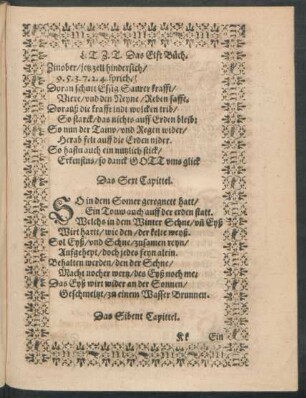 L. T. Z. T. Das Elfft Büch.
Zinober / jetz zell hindersich /
9. 5. 3. 7. 2. 4. sprich /
Doran schütt Essig Sauwer krafft /
Viere / vnd den Neyne / Reben safft.
Dorauß die krafft indt wolcken trib /
So starck / das nichts auff Erden bleib:
So nun der Tauw / vnd Regen wider /
Herab felt auff die Erden nider.
So hastu auch ein nutzlich stick /
Erkenstus / so danck GOTT vms glick
Das Sext Capittel.
SO in dem Somer geregnett hatt /
Ein Touw auch auff der erden statt.
Welchs in dem Winter Schne / vñ Eyß
Wirt hatte / wie den / der kelte weyß.
Sol Eyß / vnd Schne / zusamen reyn /
Auffgehept / doch jedes seyn alein.
Behalten werden / den der Schne /
Macht nocher weyn / des Eyß noch me,
Das Eyß wirt wider an der Sonnen /
Geschmeltzt / zu einem Wasser Brunnen.
Das Sibent Capittel.
Kk Ein